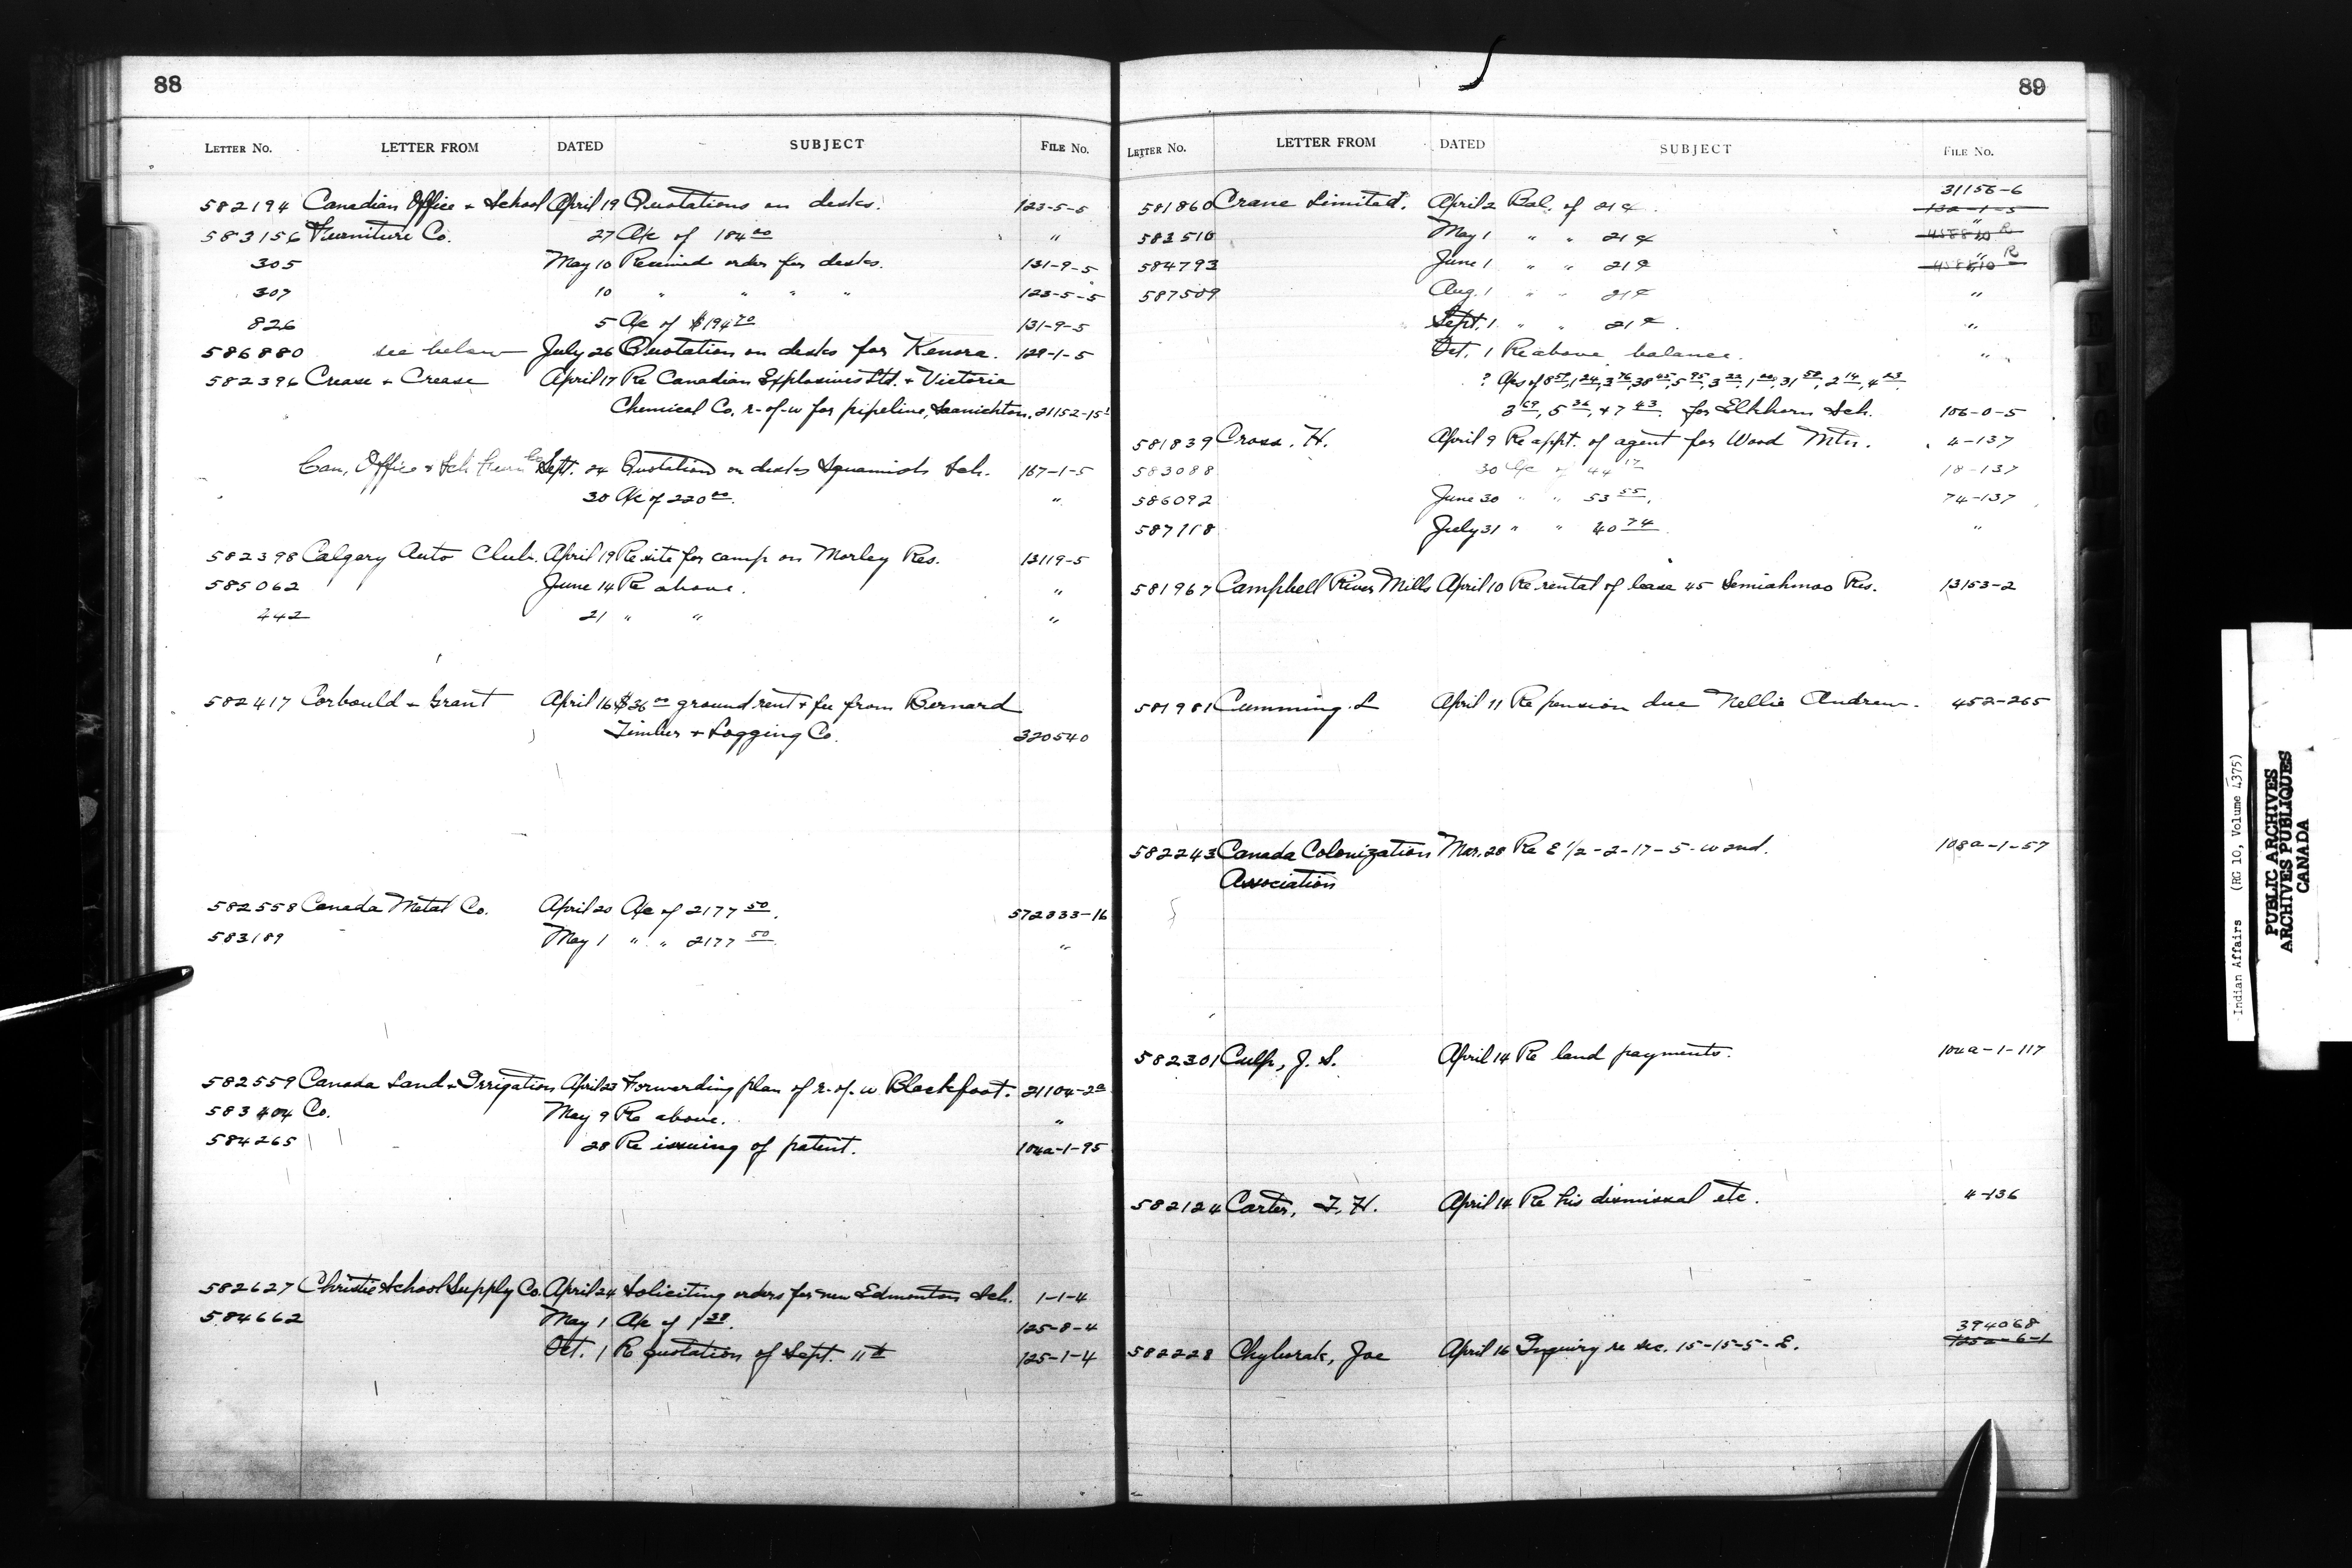 88
LETTER No. LETTER FROM DATED SUBJECT FILE No.
582194 Canadian Office & School April 19 Quotations on desks. 123-5-5
583156 Furniture Co. 27 A/c of 184 00 "
305 May 10 Received order for desks. 131-9-5
307 10 " " " " 123-5-5
826 5 A/c of $194 70 131-9-5
586880 see below July 26 Quotation on desks for Kenora. 129-1-5
582396 Crease & Crease April 17 Re Canadian Explosives Ltd. & Victoria
Chemical Co. r-of-w for pipeline, Saanichton. 21152-15
Can. Office & Sch Furn Co Sept. 24 Quotation on desks Squamish Sch. 167-1-5
30 A/c of 220 00. "
582398 Calgary Auto Club. April 19 Re site for camp on Morley Res. 13119-5
585062 June 14 Re above. "
442 21 " " "
582417 Corbould & Grant April 16 $36 00 ground rent & fee from Bernard
Timber & Logging Co. 320540
582558 Canada Metal Co. April 20 A/c of 2177 50. 572833-16
583189 May 1 " " 2177 50. "
582559 Canada Land & Irrigation April 23 Forwarding plan of r-of-w Blackfoot. 21104-2a
583404 Co. May 9 Re above. "
584265 28 Re issuing of patent. 104a-1-95
582627 Christie School Supply Co. April 24 Soliciting orders for new Edmonton Sch. 1-1-4
584662 May 1 A/c of 1 38. 125-8-4
Oct. 1 Re quotation of Sept. 11th 125-1-4
89
LETTER No. LETTER FROM DATED SUBJECT FILE No.
31156-6
581860 Crane Limited. April 2 Bal. of 21¢. 132-1-5
583510 May 1 " " 21¢ " 458810 R
584793 June 1 " " 21¢ " 458810 R
587509 Aug. 1 " " 21¢ "
Sept. 1 " " 21¢. "
Oct. 1 Re above balance. "
? A/cs of 8 59, 1 24, 3 76, 38 45, 5 95, 3 22, 1 00, 31 58, 2 14, 4 23
3 69, 5 36, & 7 43 for Elkhorn Sch. 106-0-5
581839 Cross. H. April 9 Re appt. of agent for Wood Mtn. 4-137
583088 30 A/c of 44 17 18-137
586092 June 30 " " 53 55. 74-137
587118 July 31 " " 40 74. "
581967 Campbell River Mills April 10 Re rental of lease 45 Semiahmoo Res. 13153-2
581981 Cumming. L April 11 Re pension due Nellie Andrew. 452-265
582243 Canada Colonization Mar. 28 Re E 1/2-2-17-5-w 2nd. 108a-1-57
Association
582301 Culp, J. S. April 14 Re land payments. 104a-1-117
582124 Carter, T. H. April 14 Re his dismissal etc. 4-136
394068
582228 Chyburak, Joe April 16 Inquiry re sec. 15-15-5-E. 125a-6-1
Indian Affairs (RG 10, Volume 4375)
PUBLIC ARCHIVES
ARCHIVES PUBLIQUES
CANADA